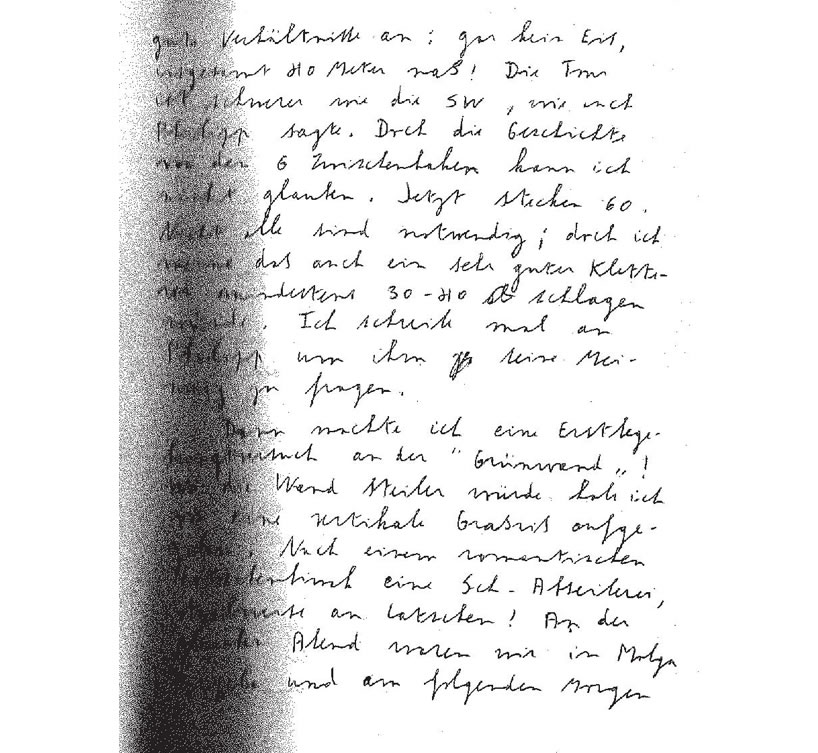 gute Verhältnisse an : gar kein Eis,
insgesamt 40 Meter naß! Die Tour
ist schwerer wie die SW , wie auch
Philipp sagte. Doch die Geschichte
von den 6 Zwischenhaken kann ich
nicht glauben. Jetzt stecken 60.
Nicht alle sind notwendig; doch ich
meine das auch ein sehr guter Klette-
rer mindestens 30-40 schlagen
würde. Ich schreib mal an
Philipp um ihn seine Mei-
nung zu fragen.
Dann machte ich eine Erstbege-
hungversuch an der "Grünwand„!
wo die Wand steiler würde hab ich
eine vertikale Grasriß aufge-
geben. Nach einem romantischen
eine Sch- Abseilerei,
an Latschen! An der
Abend waren wir in Malga
und am folgenden Morgen